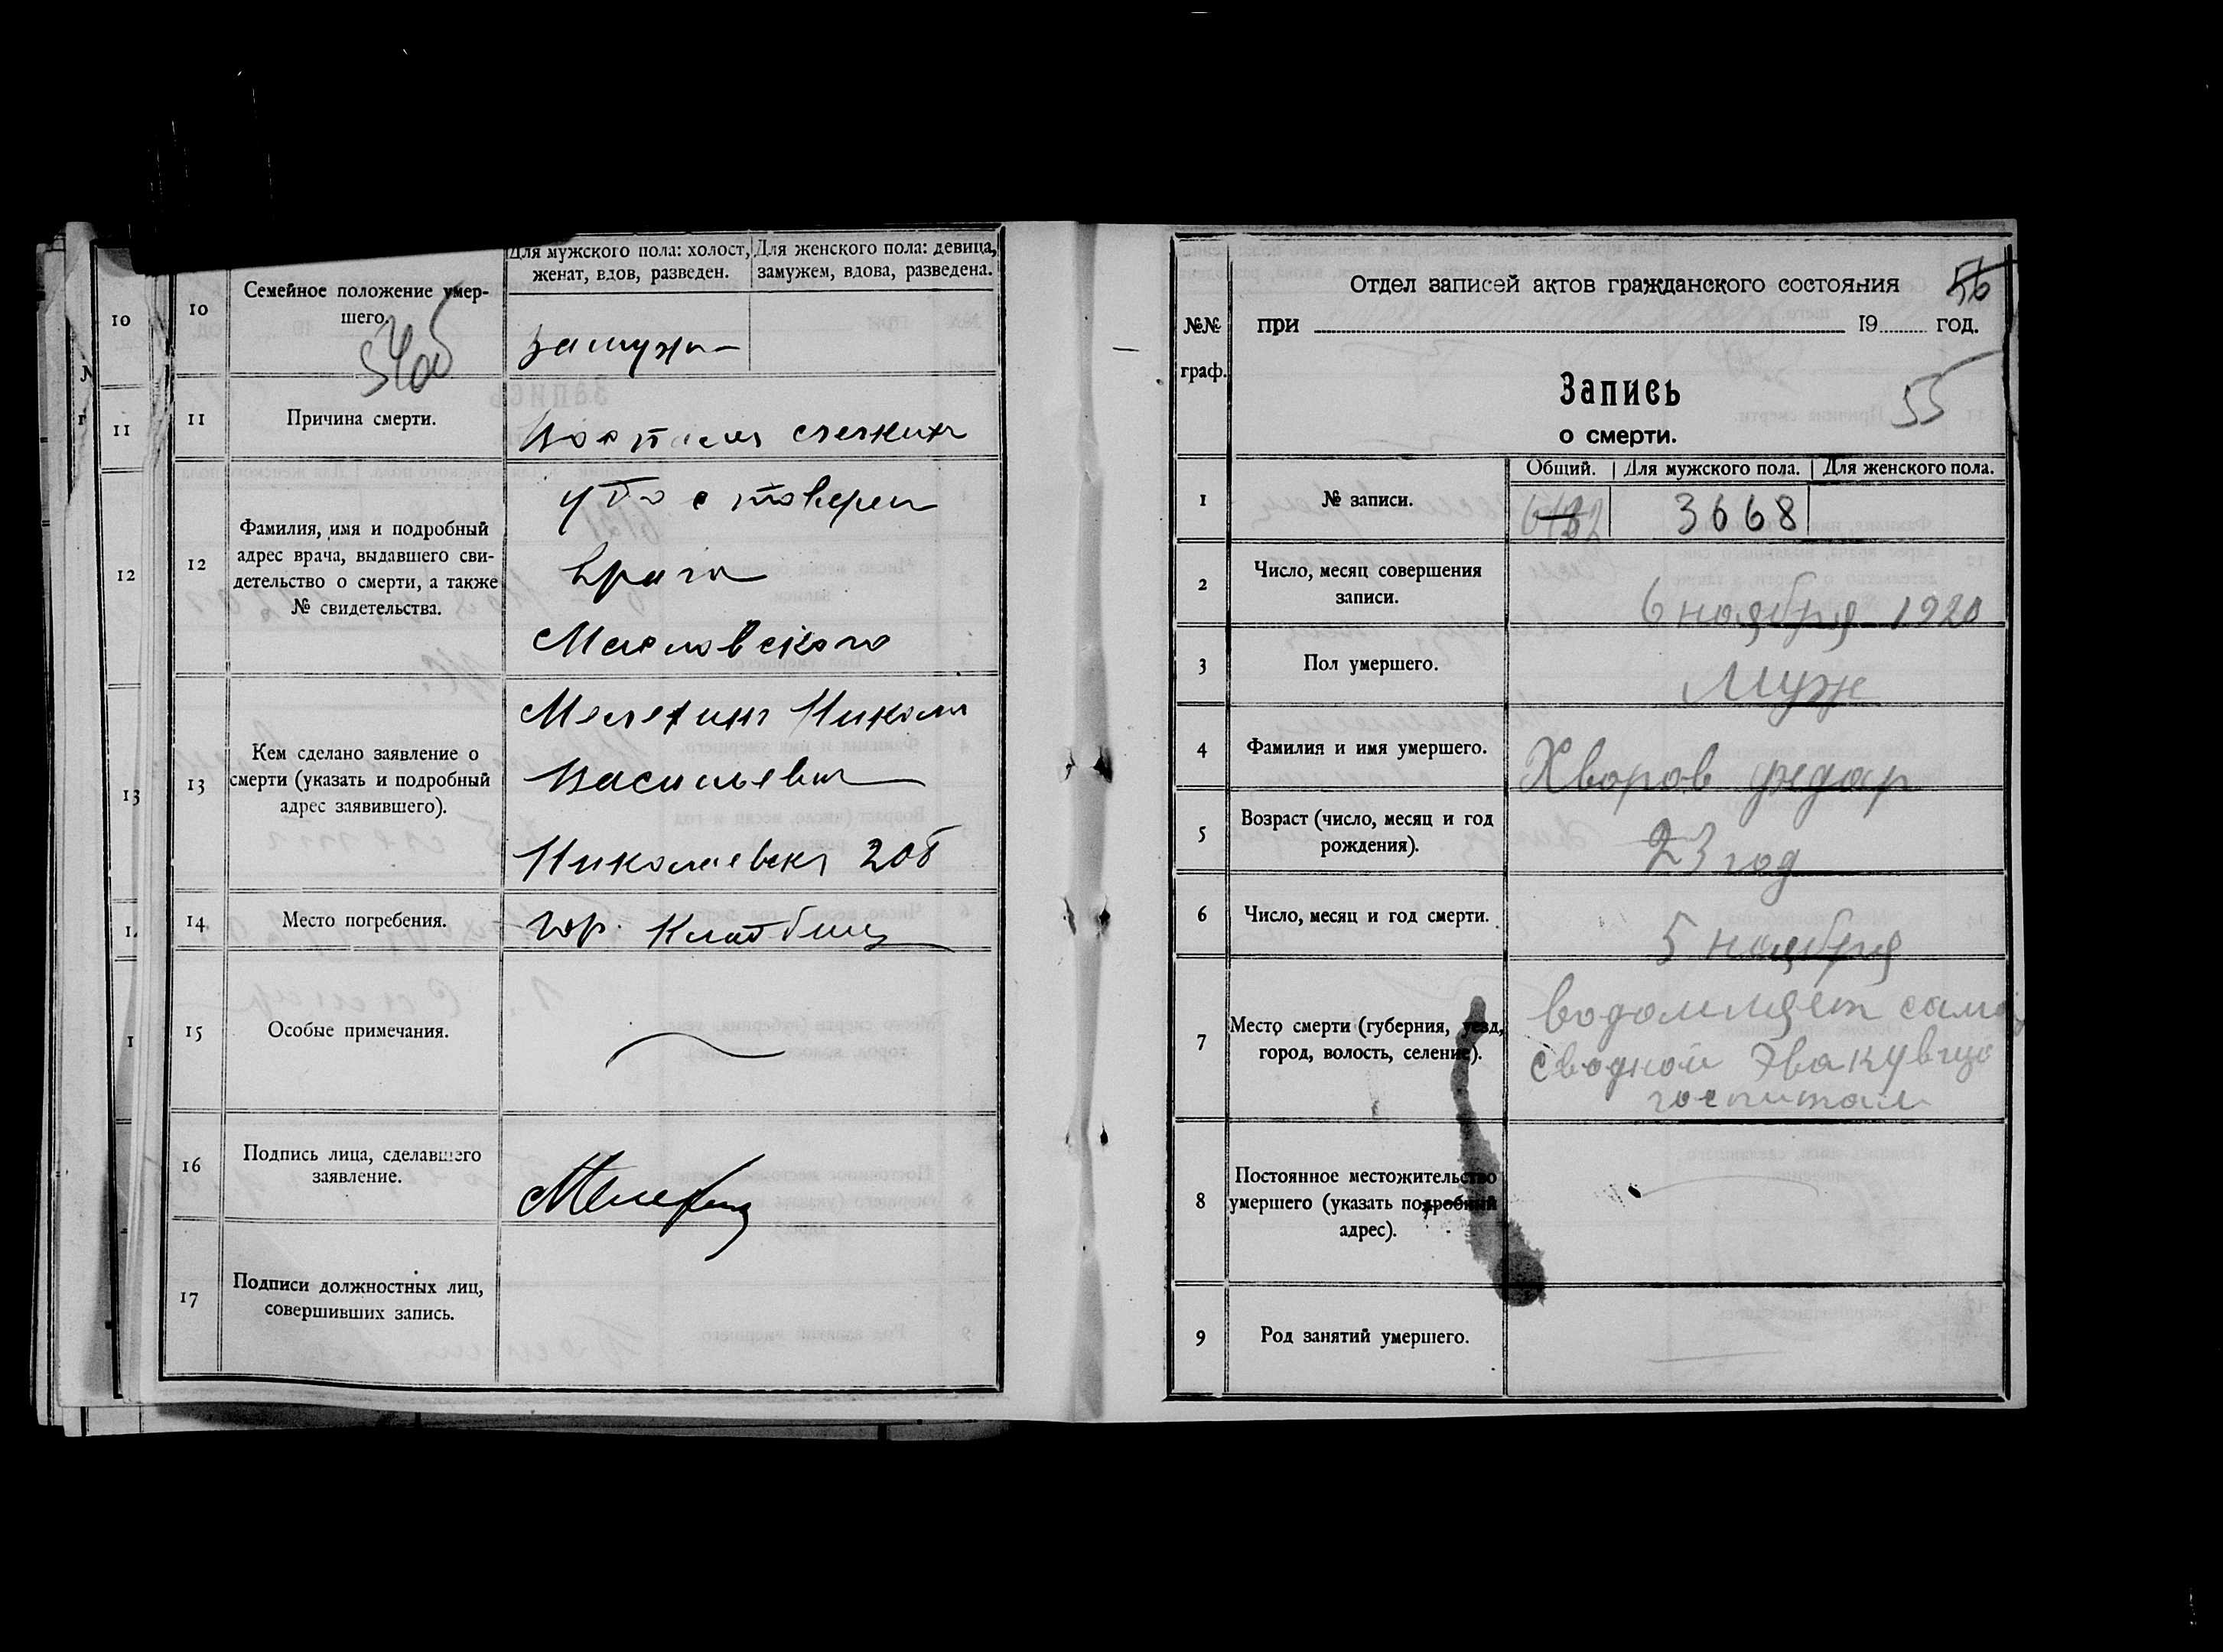 10
11
12
13
Для мужского пола: холост, женат, вдов, разведен.
Для женского пола: девица, замужем, вдова, разведена.
10
Семейное положение умер-
шего.
замужн
11
Причина смерти.
12
Фамилия, имя и подробный
адрес врача, выдавшего сви-
детельство о смерти, а также
№ свидетельства.
врача
Масловского
13
Кем сделано заявление о
смерти (указать и подробный
адрес заявившего).
Мелехин Никола
Васильевич
Николаевск 20б
14
Место погребения.
гор. Кладбищ
15
Особые примечания.
16
Подпись лица, сделавшего
заявление.
17
Подписи должностных лиц,
совершивших запись.
№№
граф.
Отдел записей актов гражданского состояния
56
при 19 год.
Запись
55
о смерти.
1
№ записи.
Общий.
Для мужского пола.
Для женского пола.
3668
2
Число, месяц совершения
записи.
6 ноября 1920
3
Пол умершего.
Муж
4
Фамилия и имя умершего.
Хворов Федар
5
Возраст (число, месяц и год
рождения).
23 год
6
Число, месяц и год смерти.
5 ноября
7
Место смерти (губерния, уезд,
город, волость, селение).
сводной Эвакувцо
госпитал
8
Постоянное местожительство
умершего (указать подробный
адрес).
9
Род занятий умершего.